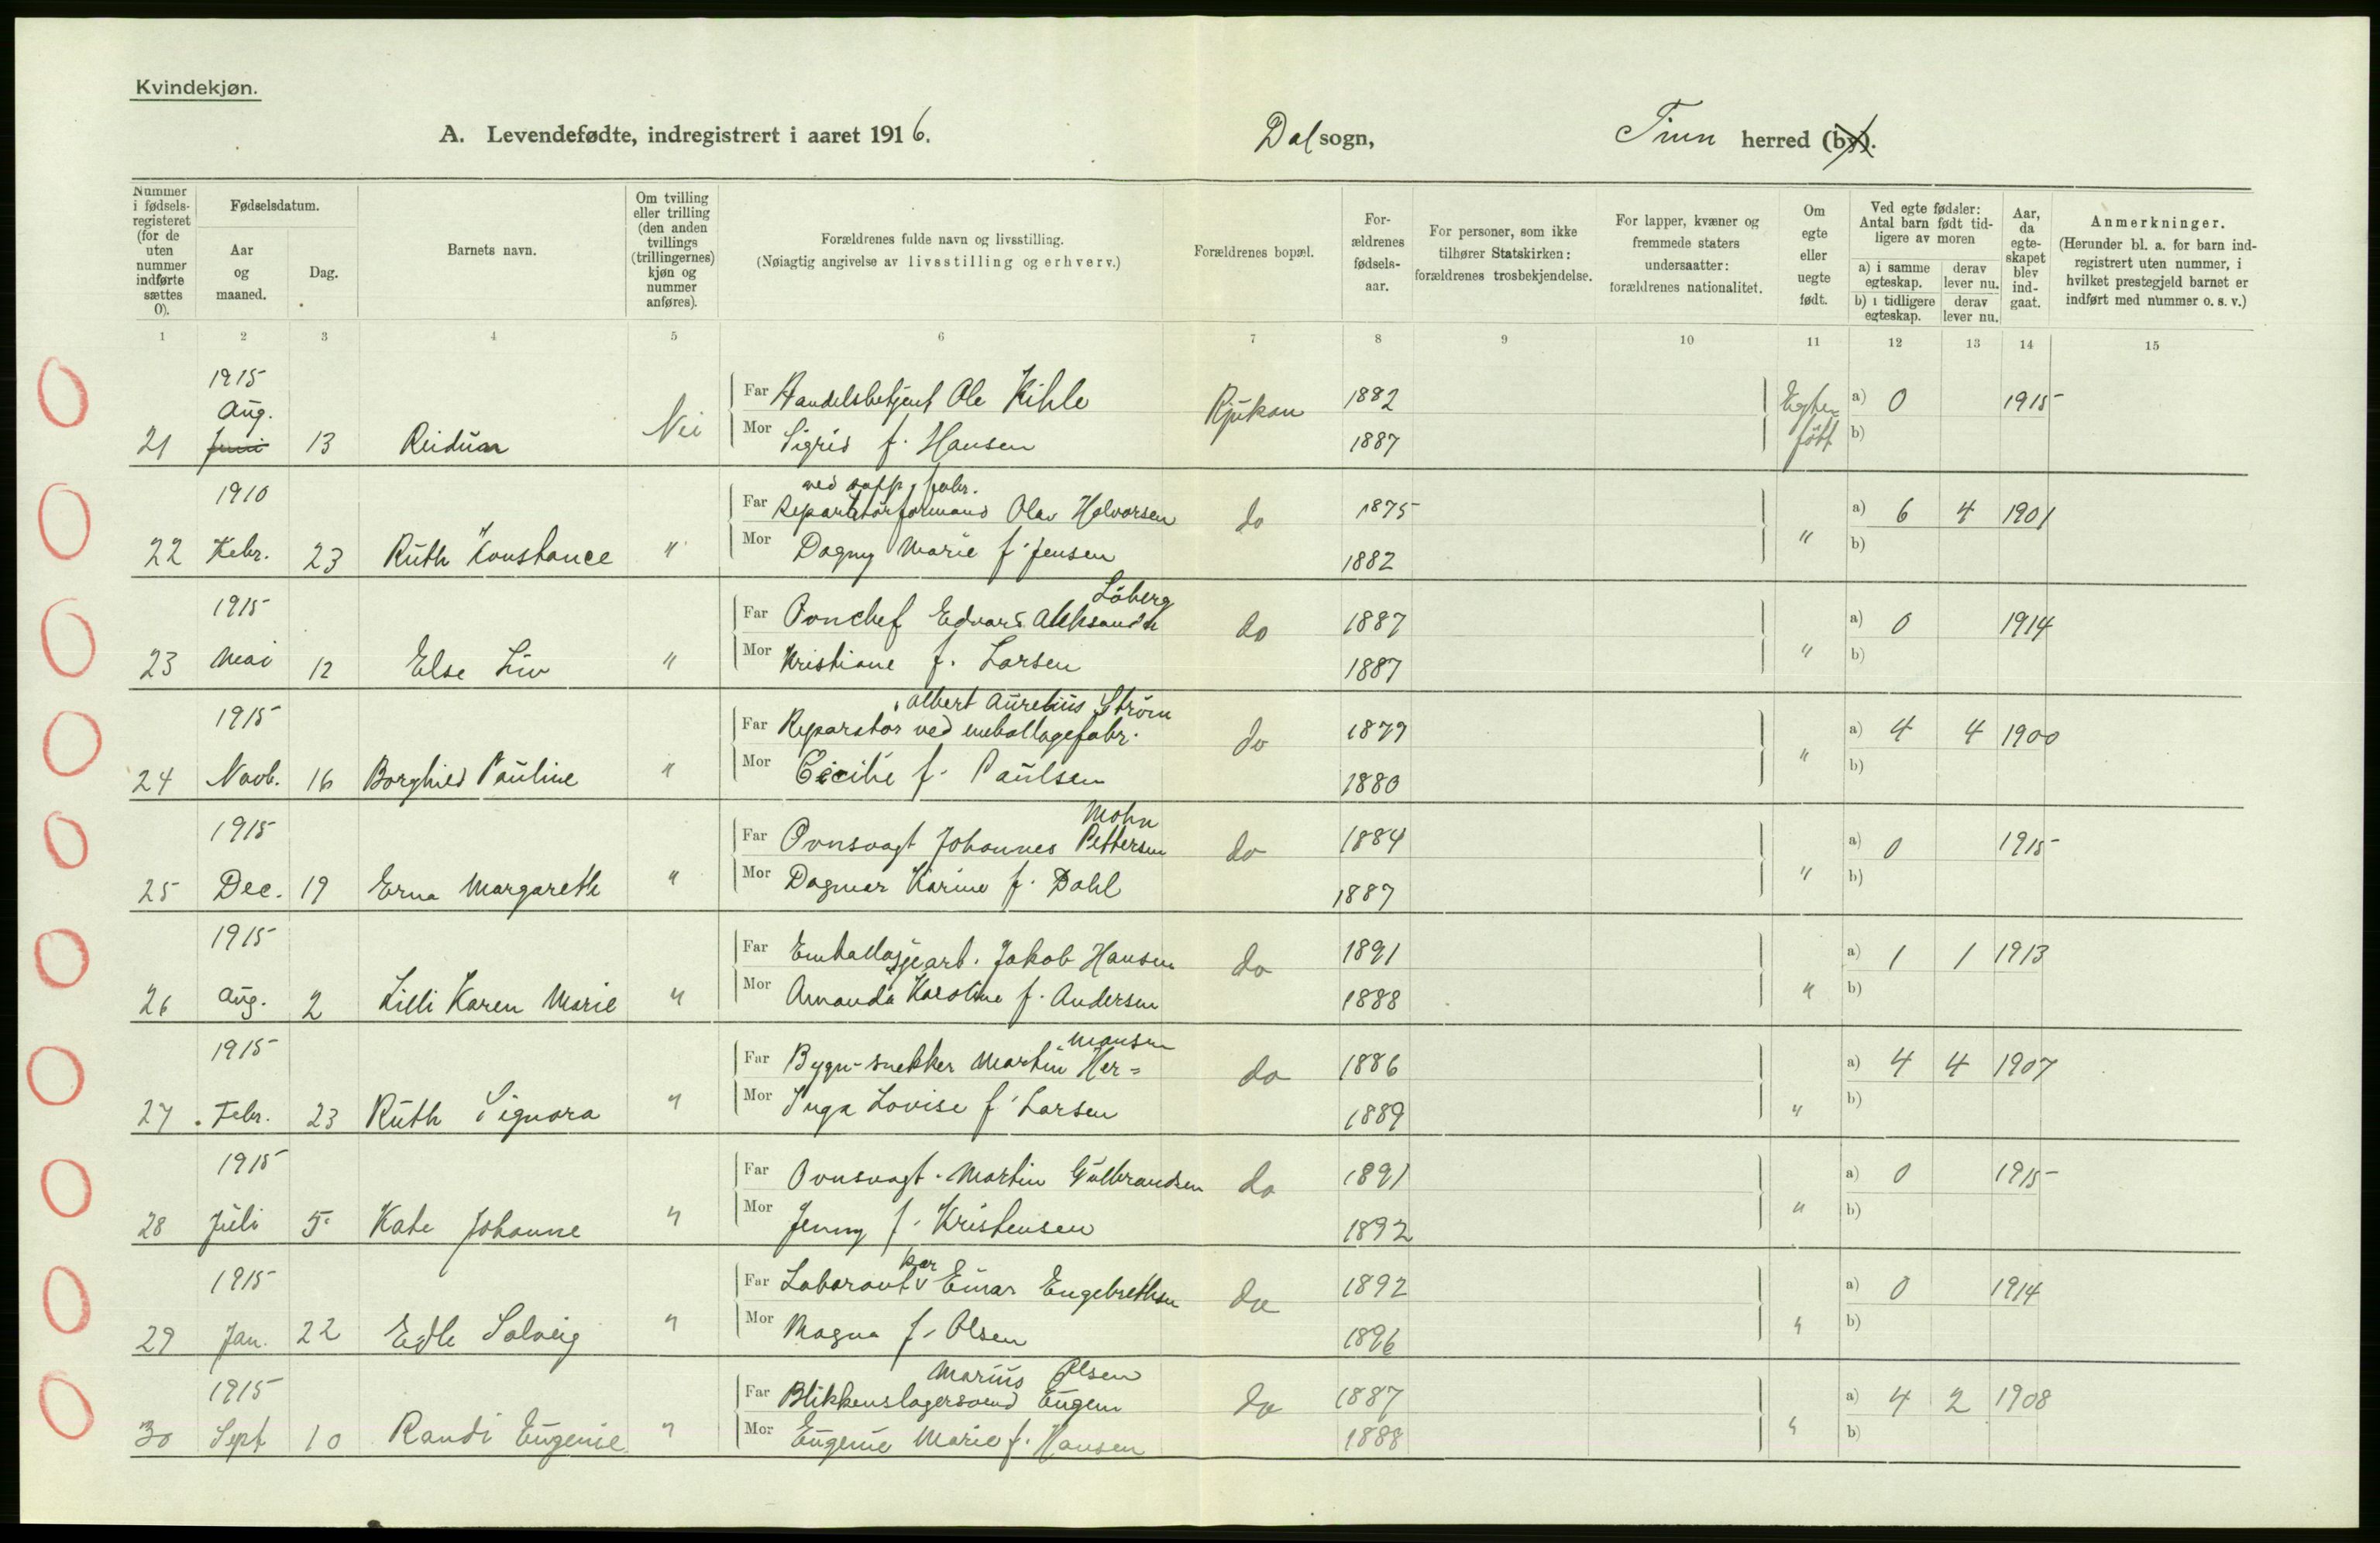 Kvindekjøn.
A. Levendefødte, indregistrert i aaret 1916. Dal sogn, Tinn herred (by).
Nummer i fødselsregisteret (for de uten nummer indførte sættes 0).
Fødselsdatum.
Aar og maaned.
Dag.
Barnets navn.
Om tvilling eller trilling (den anden tvillings (trillingernes) kjøn og nummer anføres).
Forældrenes fulde navn og livsstilling.
(Nøiagtig angivelse av livsstilling og erhverv.)
Forældrenes bopæl.
Forældrenes fødselsaar.
For personer, som ikke tilhører Statskirken: forældrenes trosbekjendelse.
For lapper, kvæner og fremmede staters undersaatter: forældrenes nationalitet.
Om egte eller uegte født.
Ved egte fødsler: Antal barn født tidligere av moren
a) i samme egteskap. derav lever nu.
b) i tidligere egteskap. derav lever nu.
Aar, da egteskapet blev indgaat.
Anmerkninger.
(Herunder bl. a. for barn indregistrert uten nummer, i hvilket prestegjeld barnet er indført med nummer o. s. v.)
1 2 3 4 5 6 7 8 9 10 11 12 13 14 15
1915
Aug.
21 Juni 13 Reidun Nei
Far Handelsbetjent Ole Kihle Rjukan 1882 Egte født a) 0 1915
Mor Sigrid f. Hansen 1887 b)
1910
22 Febr. 23 Ruth Konstance "
ved papp.fabr.
Far Reparatörformand Olav Halvorsen do 1875 " a) 6 4 1901
Mor Dagny Marie f. Jensen 1882 b)
1915
23 Mai 12 Else Liv "
Löberg
Far Ovnchef Edvard Aleksander do 1887 " a) 0 1914
Mor Kristiane f. Larsen 1887 b)
1915
24 Novb. 16 Borghild Pauline "
Albert Aurelius Strøm
Far Reparatør ved emballagefabr. do 1879 " a) 4 4 1900
Mor Cecilie f. Paulsen 1880 b)
1915
25 Dec. 19 Erna Margareth "
Mohn
Far Ovnsvagt Johannes Pettersen do 1884 " a) 0 1915
Mor Dagmar Karine f. Dahl 1887 b)
1915
26 Aug. 2 Lilli Karen Marie "
Far Emballasjearb. Jakob Hansen do 1891 " a) 1 1 1913
Mor Amanda Karoline f. Andersen 1888 b)
1915
27 Febr. 23 Ruth Signora "
mansen
Far Bygn-snekker Martin Her= do 1886 " a) 4 4 1907
Mor Inga Lovise f. Larsen 1889 b)
1915
28 Juli 5 Kate Johanne "
Far Ovnsvagt Martin Gulbrandsen do 1891 " a) 0 1915
Mor Jenny f. Kristensen 1892 b)
1915
29 Jan. 22 Edle Solveig "
Far Laborant Einar Engebrethsen do 1892 " a) 0 1914
Mor Magna f. Olsen 1896 b)
1915
30 Sept 10 Randi Eugenie "
Marius Olsen
Far Blikkenslagersvend Eugen do 1887 " a) 4 2 1908
Mor Eugenie Marie f. Hansen 1888 b)